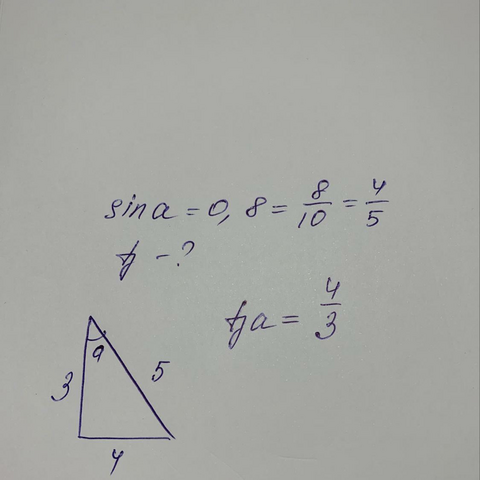 sin a = 0,8 = 8/10 = 4/5
tg - ?
tg a = 4/3
a
3
5
4